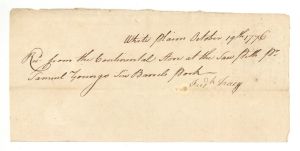 White Plains October 19th 1776
Recd from the Continental Store at the Saw Pitts Pr
Samuel Youngs Barrels Pork
Tracy